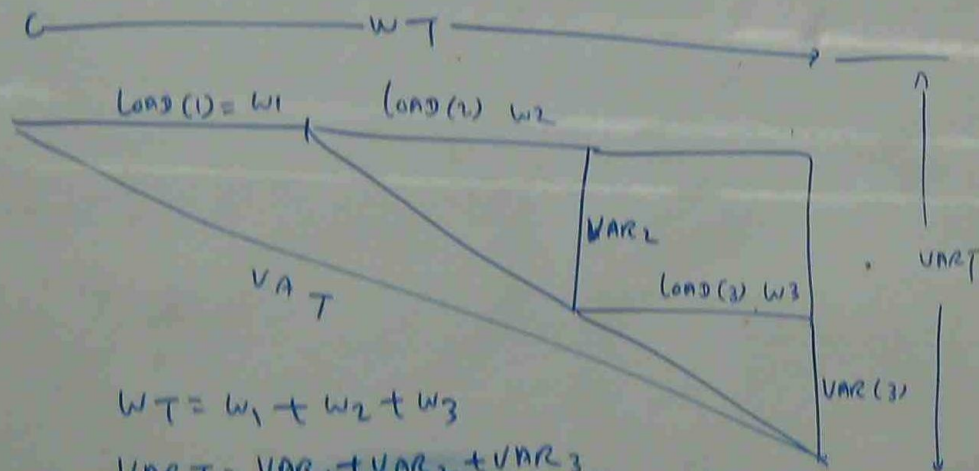 WT
LOAD(1) = W1 LOAD(2) W2
VAR2
LOAD(3) W3
VART
VA T
VAR(3)
WT = W1 + W2 + W3
VART = VAR + VAR2 + VAR3